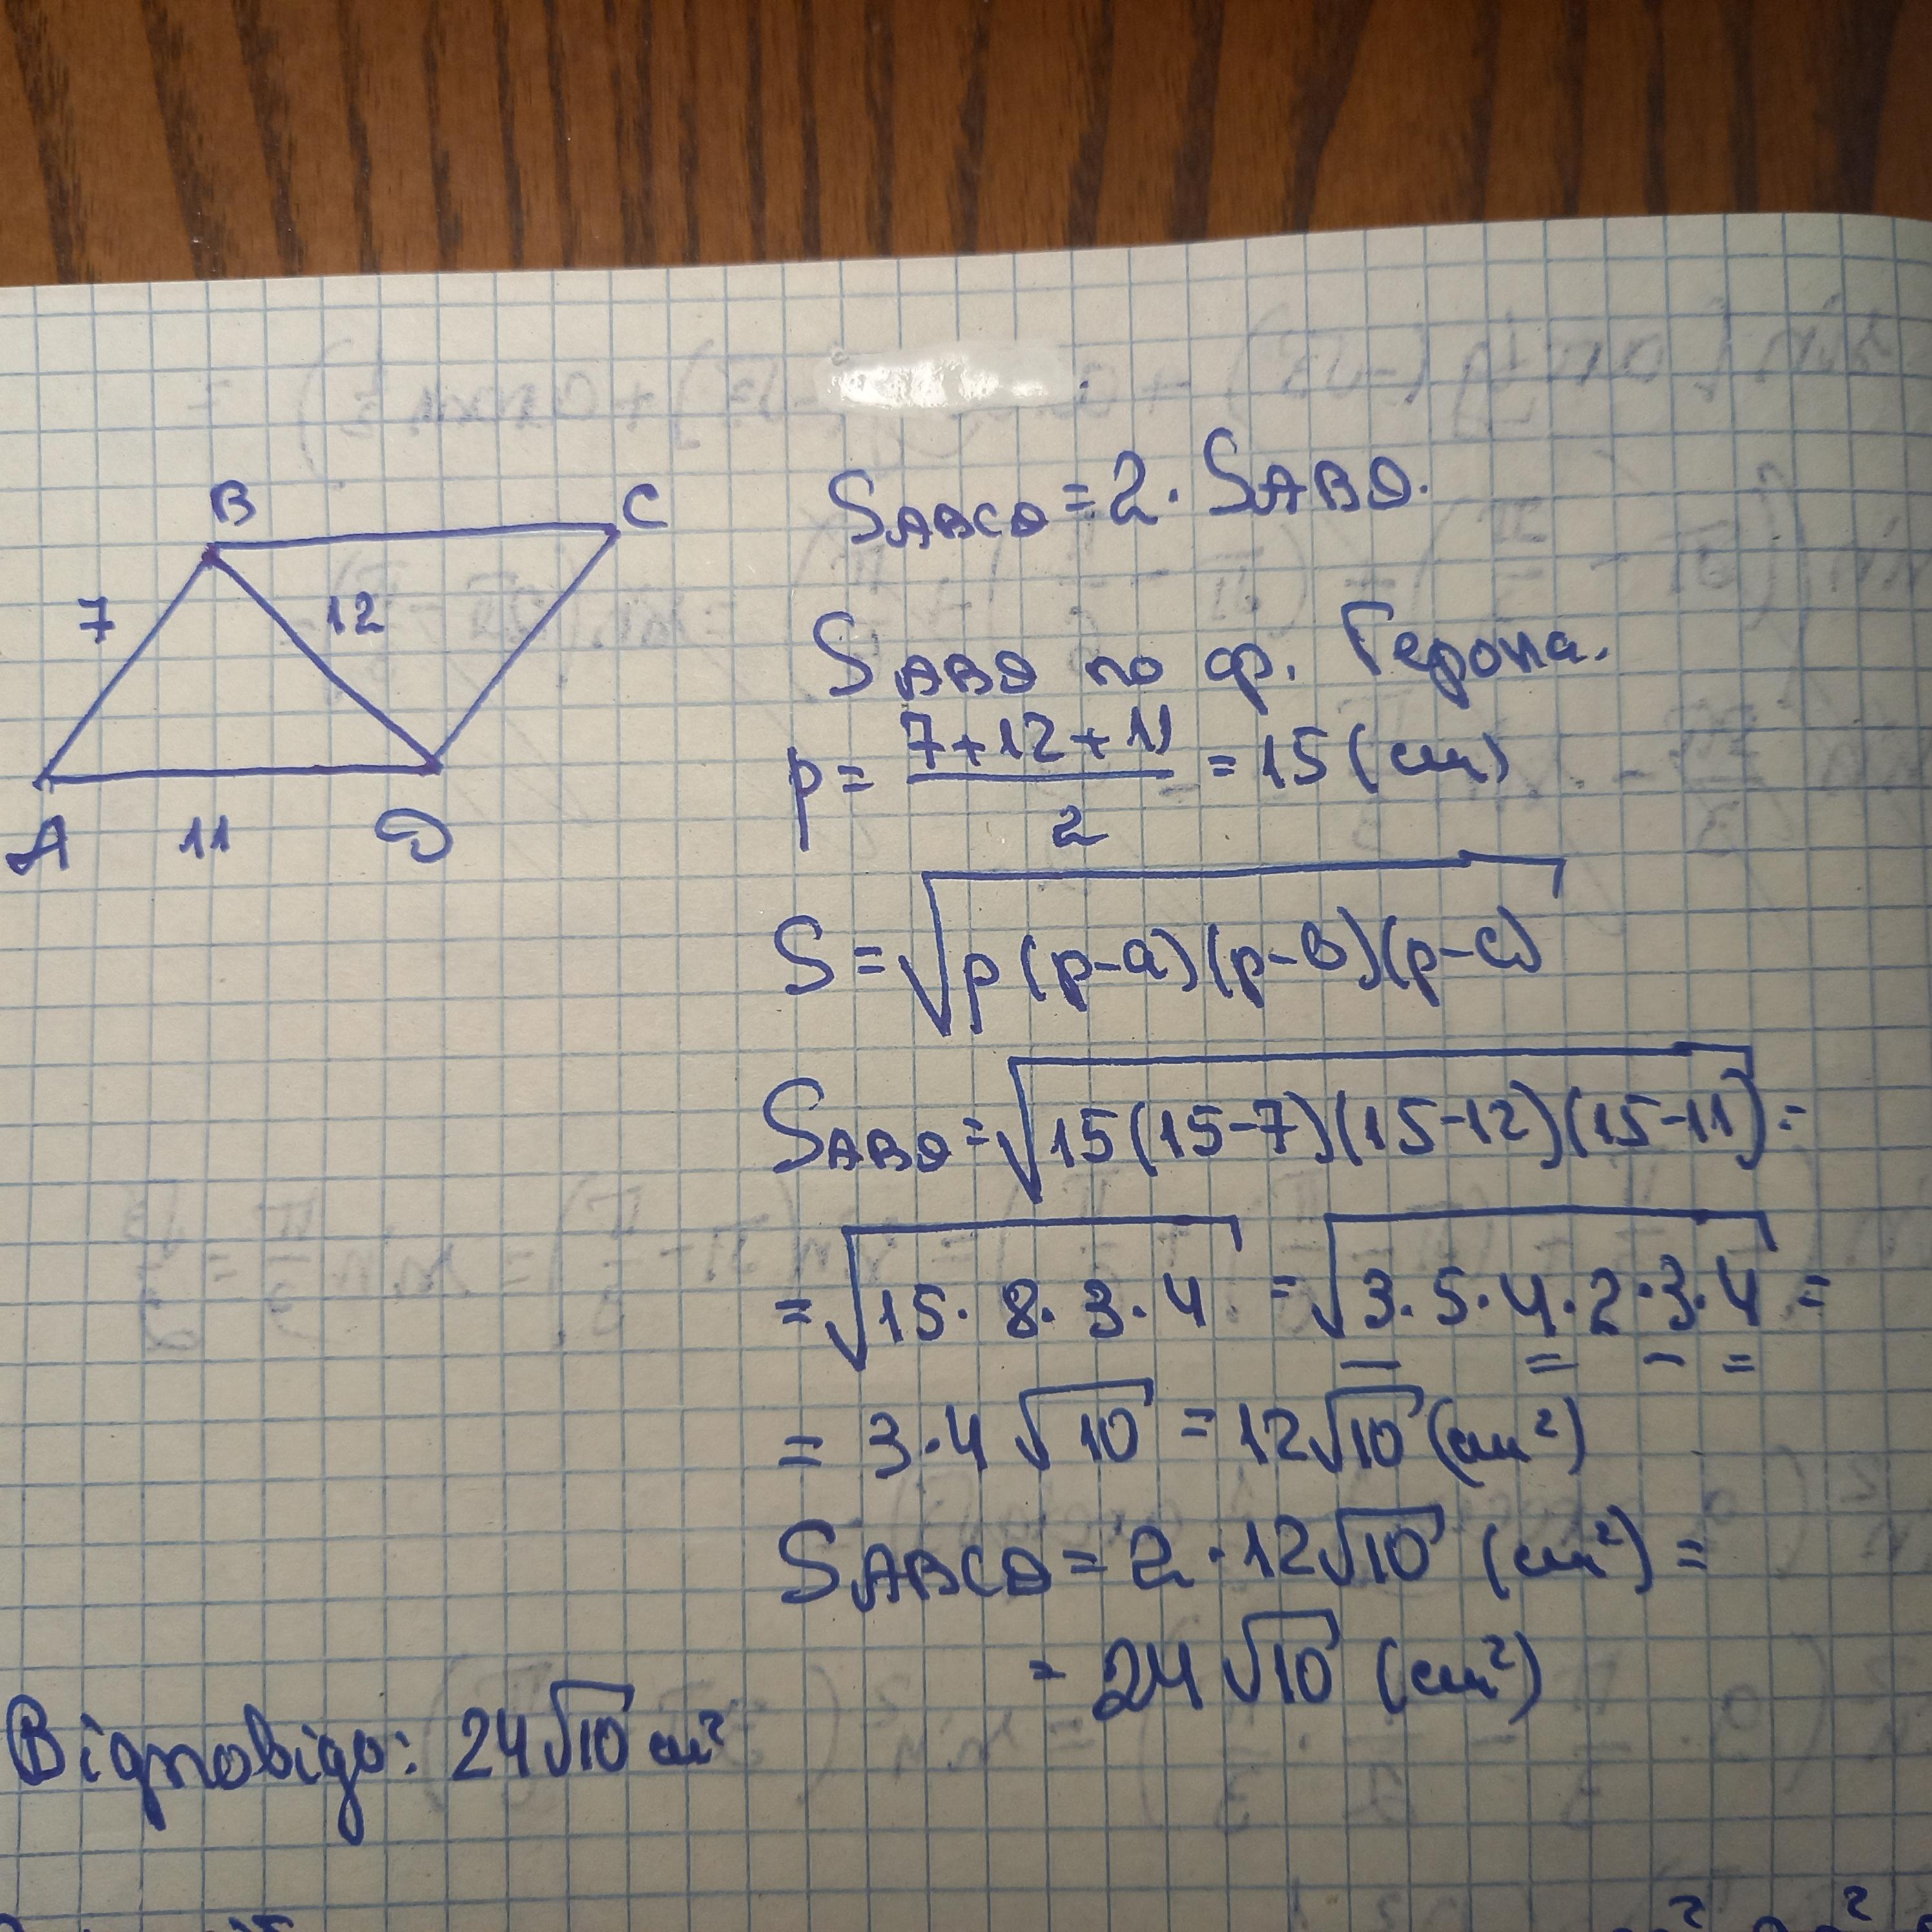 B
C
7
12
A
11
D
S ABCD = 2 · S ABD.
S ABD по ф. Герона.
p = (7+12+11)/2 = 15 (см)
S = √(p(p-a)(p-b)(p-c))
S ABD = √(15(15-7)(15-12)(15-11)) =
= √(15 · 8 · 3 · 4) = √(3 · 5 · 4 · 2 · 3 · 4) =
= 3 · 4 √10 = 12√10 (см²)
S ABCD = 2 · 12√10 (см²) =
= 24 √10 (см²)
Відповідь: 24√10 см²